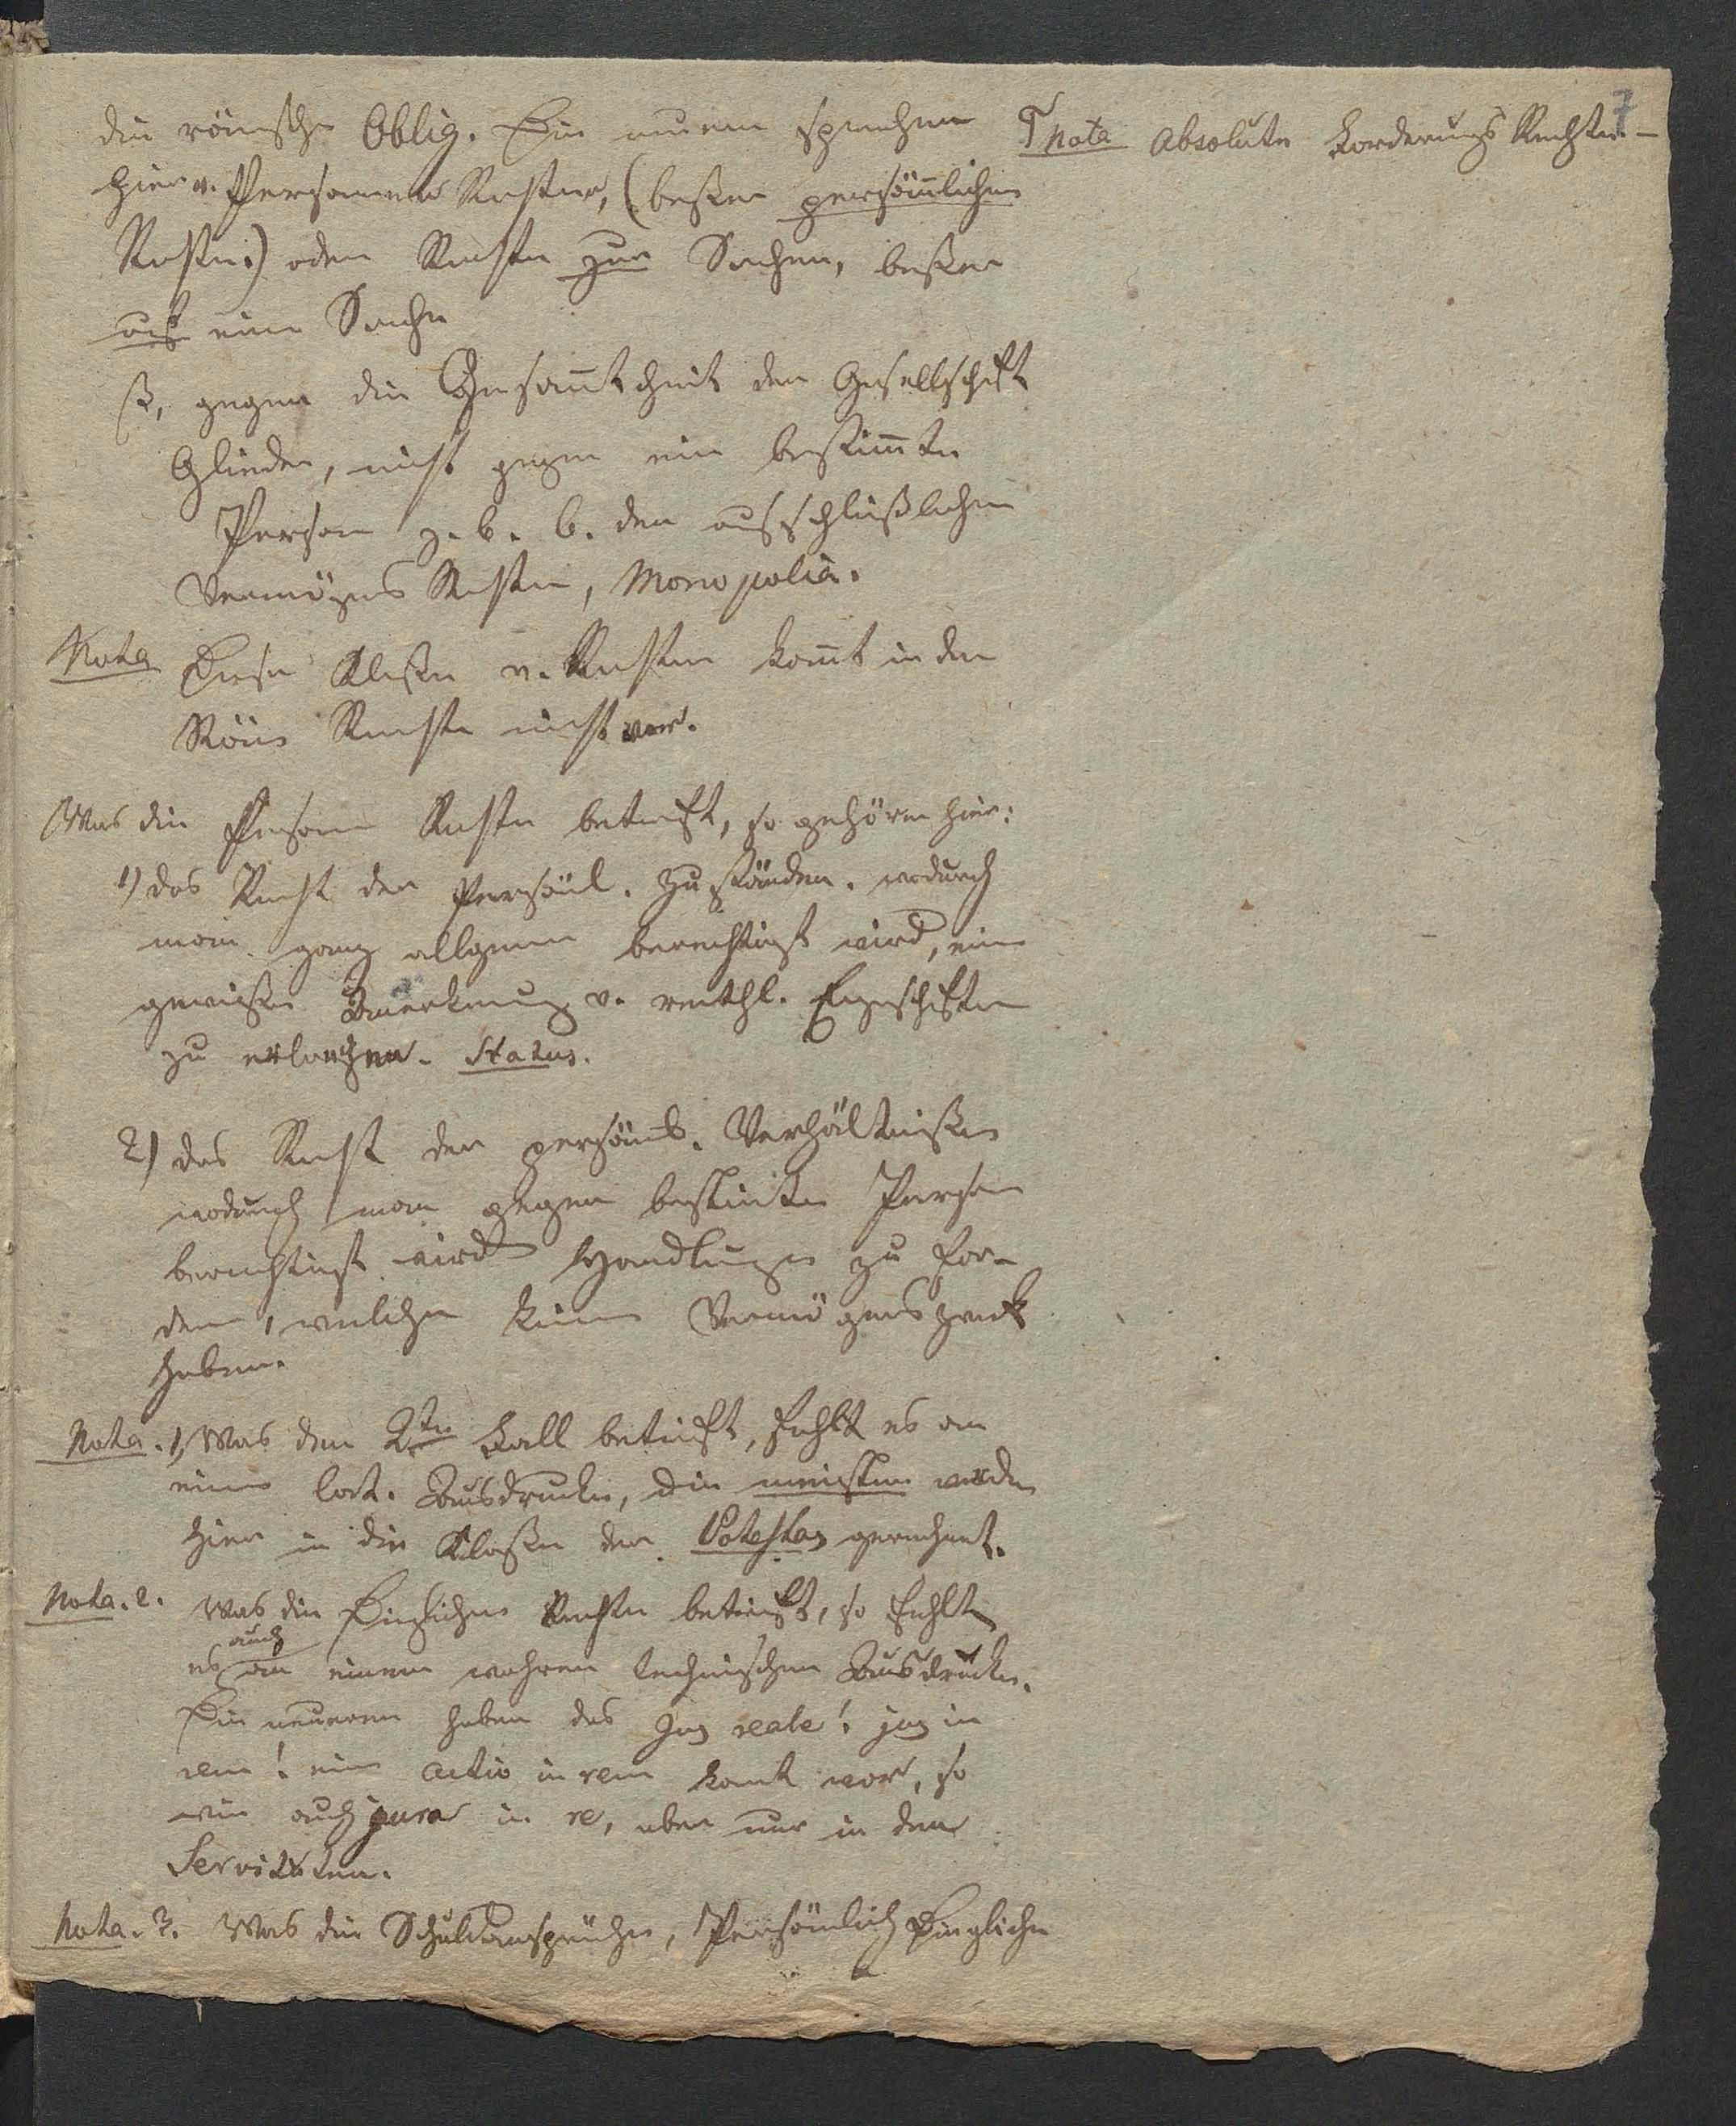 die römische Oblig. Die neuern sprechen
hier v. Personen Rechten, (besser persönlichen
Rechten) oder Rechten zur Sachen, besser
auf eine Sache
ß, gegen die Gesam̄theit der Gesellschaft
Glieder, nicht gegen eine bestim̄te
Person z. b. b. den ausschlußlichen
Vermögens Rechten, Monopolia.
Nota Diese Klasse v. Rechten kom̄t in den
Röm Rechte nicht vor.
Was die Person Rechte betrift, so gehören hier:
1) das Recht der Persönl. Zuständen. wodurch
man ganz allgemein berechtigt wird, eine
gewisse Anerkennung v. rechtl. Eigenschaften
zu verlangen. Status.
2) das Recht der persönl. Verhältnisse
wodurch man gegen bestimte Person
berechtigt wird Handlungen zu for-
dern, welche keinen Vermögenszweck
haben.
Nota. 1, Was den 2ten Fall betrift, fehlt es an
einem lat. Ausdrucke, die meisten werden
hier in die Klasse der Potestas gerechnet.
Nota. 2. Was die Dinglichen Rechte betrift, so fehlt
auch
es an einem wahren technischen Ausdrucke.
Die neueren haben das Jus reale! jus in
rem! eine actio in rem komt vor, so
wie auch jura in re, aber nur in den
Servituten.
Nota. 3. Was die Schuldansprüche, Persönlich Dingliche
7
Nota Absolute Forderungs Rechte. -